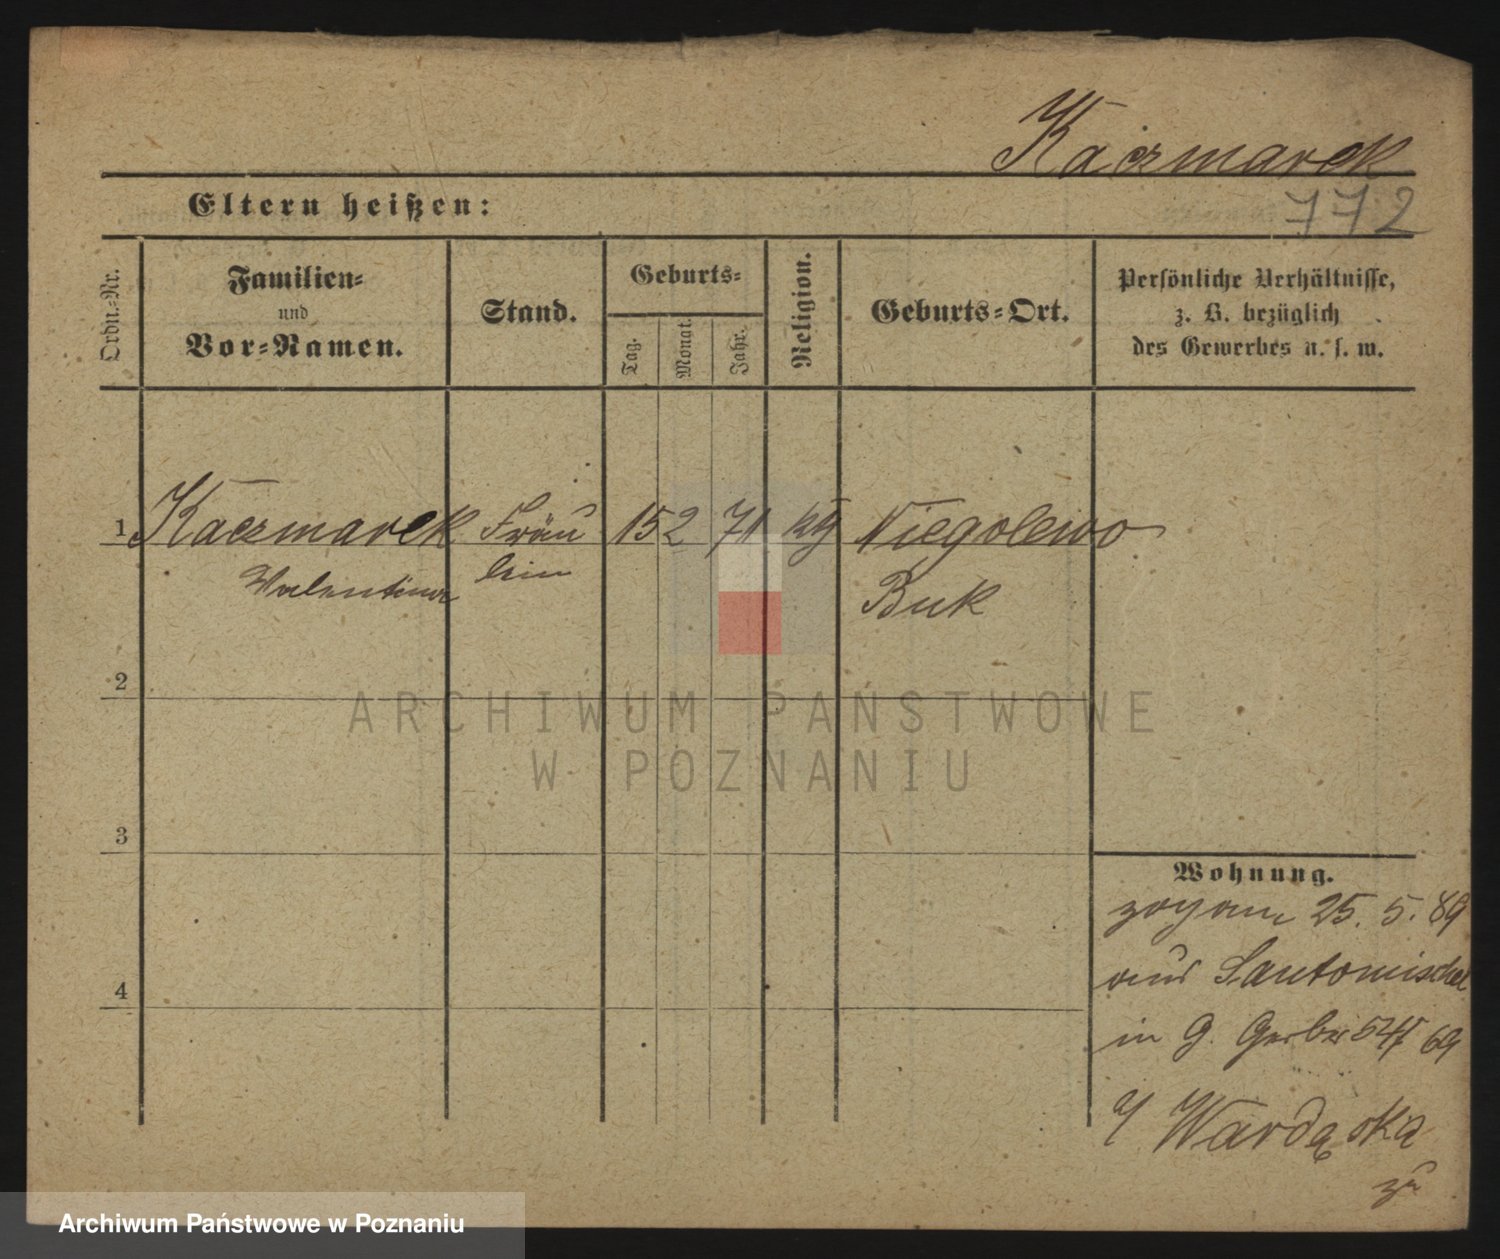 Kaczmarek
Eltern heißen:
772
Ordn.-Nr.
Familien-
und
Vor-Namen.
Stand.
Geburts-
Tag.
Monat.
Jahr.
Religion.
Geburts-Ort.
Persönliche Verhältnisse,
z. B. bezüglich
des Gewerbes u. s. w.
1 Kaczmarek Fräu 15 2 71 kg Niegolewo
Valentina lein Buk
2
3
4
ARCHIWUM PAŃSTWOWE
W POZNANIU
Wohnung.
zog am 25. 5. 89
aus Santomischel
in G. Gerberstr 69
b/ Wardęska
zu
Archiwum Państwowe w Poznaniu